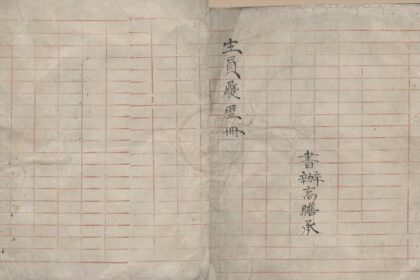 生員履歷冊
書辦高勝承